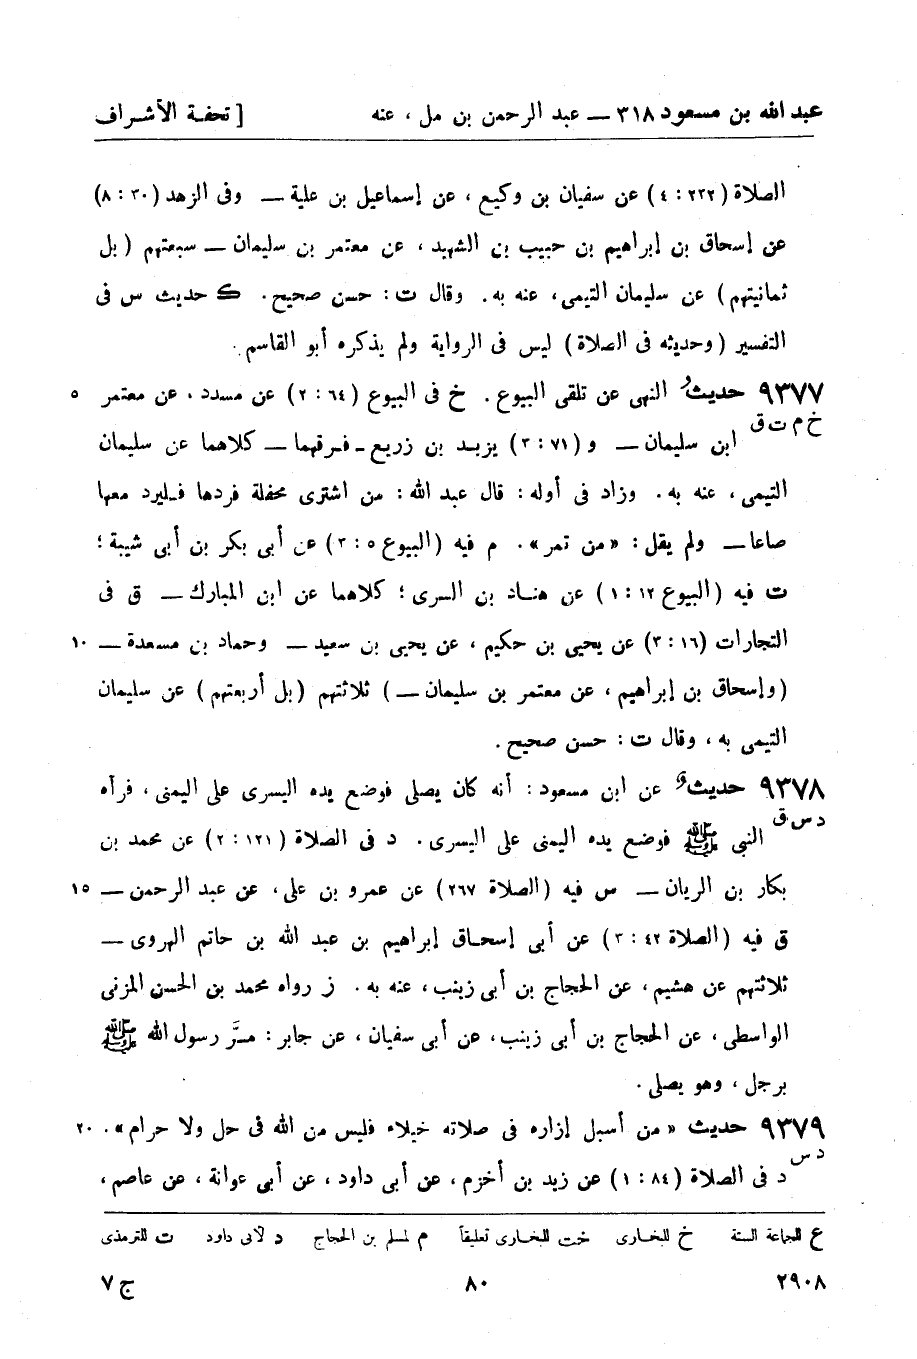 عبد الله بن مسعود ٣١٨ — عبد الرحمن بن مل ، عنه [ تحفة الأشراف
الصلاة ( ٢٣٢ : ٤ ) عن سفيان بن وكيع ، عن إسماعيل بن علية — وفى الزهد ( ٣٠ : ٨ )
عن إسحاق بن إبراهيم بن حبيب بن الشهيد ، عن معتمر بن سليمان — سبعتهم ( بل
ثمانيتهم ) عن سليمان التيمى ، عنه به . وقال ت : حسن صحيح . ك حديث س فى
التفسير ( وحديثه فى الصلاة ) ليس فى الرواية ولم يذكره أبو القاسم .
٩٣٧٧ حديث النهى عن تلقى البيوع . خ فى البيوع ( ٦٤ : ٢ ) عن مسدد ، عن معتمر ٥
خ م ت ق
ابن سليمان — و ( ٧١ : ٣ ) يزيد بن زريع - فرقهما — كلاهما عن سليمان
التيمى ، عنه به . وزاد فى أوله : قال عبد الله : من اشترى محفلة فردها فليرد معها
صاعا — ولم يقل : « من تمر » . م فيه ( البيوع ٥ : ٣ ) عن أبى بكر بن أبى شيبة ؛
ت فيه ( البيوع ١٢ : ١ ) عن هناد بن السرى ؛ كلاهما عن ابن المبارك — ق فى
التجارات ( ١٦ : ٣ ) عن يحيى بن حكيم ، عن يحيى بن سعيد — وحماد بن مسعدة — ١٠
( وإسحاق بن إبراهيم ، عن معتمر بن سليمان — ) ثلاثتهم ( بل أربعتهم ) عن سليمان
التيمى به ، وقال ت : حسن صحيح .
٩٣٧٨ حديث عن ابن مسعود : أنه كان يصلى فوضع يده اليسرى على اليمنى ، فرآه
د س ق
النبى ﷺ فوضع يده اليمنى على اليسرى . د فى الصلاة ( ١٢١ : ٢ ) عن محمد بن
بكار بن الريان — س فيه ( الصلاة ٢٦٧ ) عن عمرو بن على ، عن عبد الرحمن — ١٥
ق فيه ( الصلاة ٤٢ : ٣ ) عن أبى إسحاق إبراهيم بن عبد الله بن حاتم الهروى —
ثلاثتهم عن هشيم ، عن الحجاج بن أبى زينب ، عنه به . ز رواه محمد بن الحسن المزنى
الواسطى ، عن الحجاج بن أبى زينب ، عن أبى سفيان ، عن جابر : مرَّ رسول الله ﷺ
برجل ، وهو يصلى .
٩٣٧٩ حديث « من أسبل إزاره فى صلاته خيلاء فليس من الله فى حل ولا حرام » . ٢٠
د س
د فى الصلاة ( ٨٤ : ١ ) عن زيد بن أخزم ، عن أبى داود ، عن أبى عوانة ، عن عاصم ،
ع للجماعة الستة خ للبخارى خت للبخارى تعليقاً م لمسلم بن الحجاج د لأبى داود ت للترمذى
٢٩٠٨ ٨٠ ج ٧